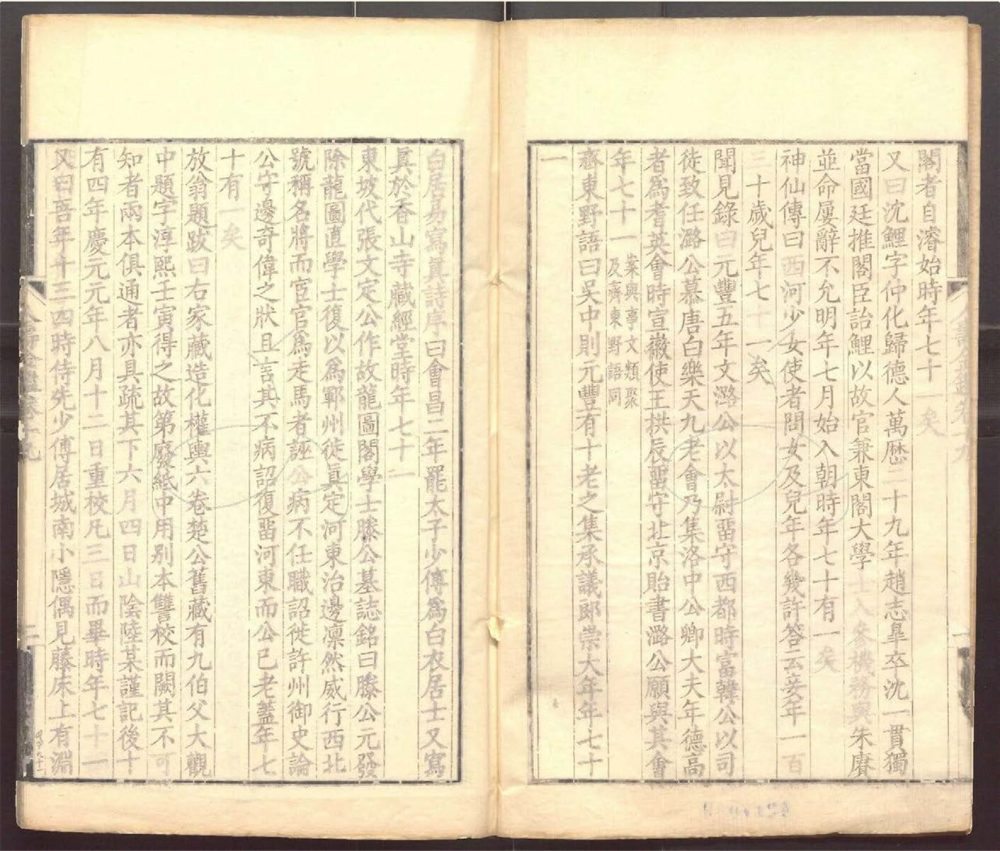 閣者自濬始時年七十一矣
又曰沈鯉字仲化歸德人萬歷二十九年趙志臯卒沈一貫獨
當國廷推閣臣詔鯉以故官兼東閣大學士入參機務與朱賡
並命屢辭不允明年七月始入朝時年七十有一矣
神仙傳曰西河少女使者問女及兒年各幾許答云妾年一百
三十歲兒年七十一矣
聞見錄曰元豐五年文潞公以太尉畱守西都時富韓公以司
徒致任潞公慕唐白樂天九老會乃集洛中公卿大夫年德高
者為耆英會時宣徽使王拱辰畱守北京貽書潞公願與其會
年七十一案與事文類聚
及齊東野語同
齋東野語曰吳中則元豐有十老之集承議郎崇大年年七十
一
白居易寫眞詩序曰會昌二年罷太子少傅為白衣居士又寫
眞於香山寺藏經堂時年七十一
東坡代張文定公作故龍圖閣學士滕公墓誌銘曰滕公元發
除龍圖直學士復以為鄆州徙眞定河東治邊凜然威行西北
號稱名將而宦官為走馬者誣公病不任職詔徙許州御史論
公守邊奇偉之狀且言其不病詔復畱河東而公已老蓋年七
十有一矣
放翁題跋曰右家藏造化權輿六卷楚公舊藏有九伯父大觀
中題字淳熙壬寅得之故第廢紙中用別本讐校而闕其不可
知者兩本俱通者亦具疏其下六月四日山陰陸某謹記後十
有四年慶元元年八月十二日重校凡三日而畢時年七十一
又曰吾年十三四時侍先少傅居城南小隱偶見藤床上有淵